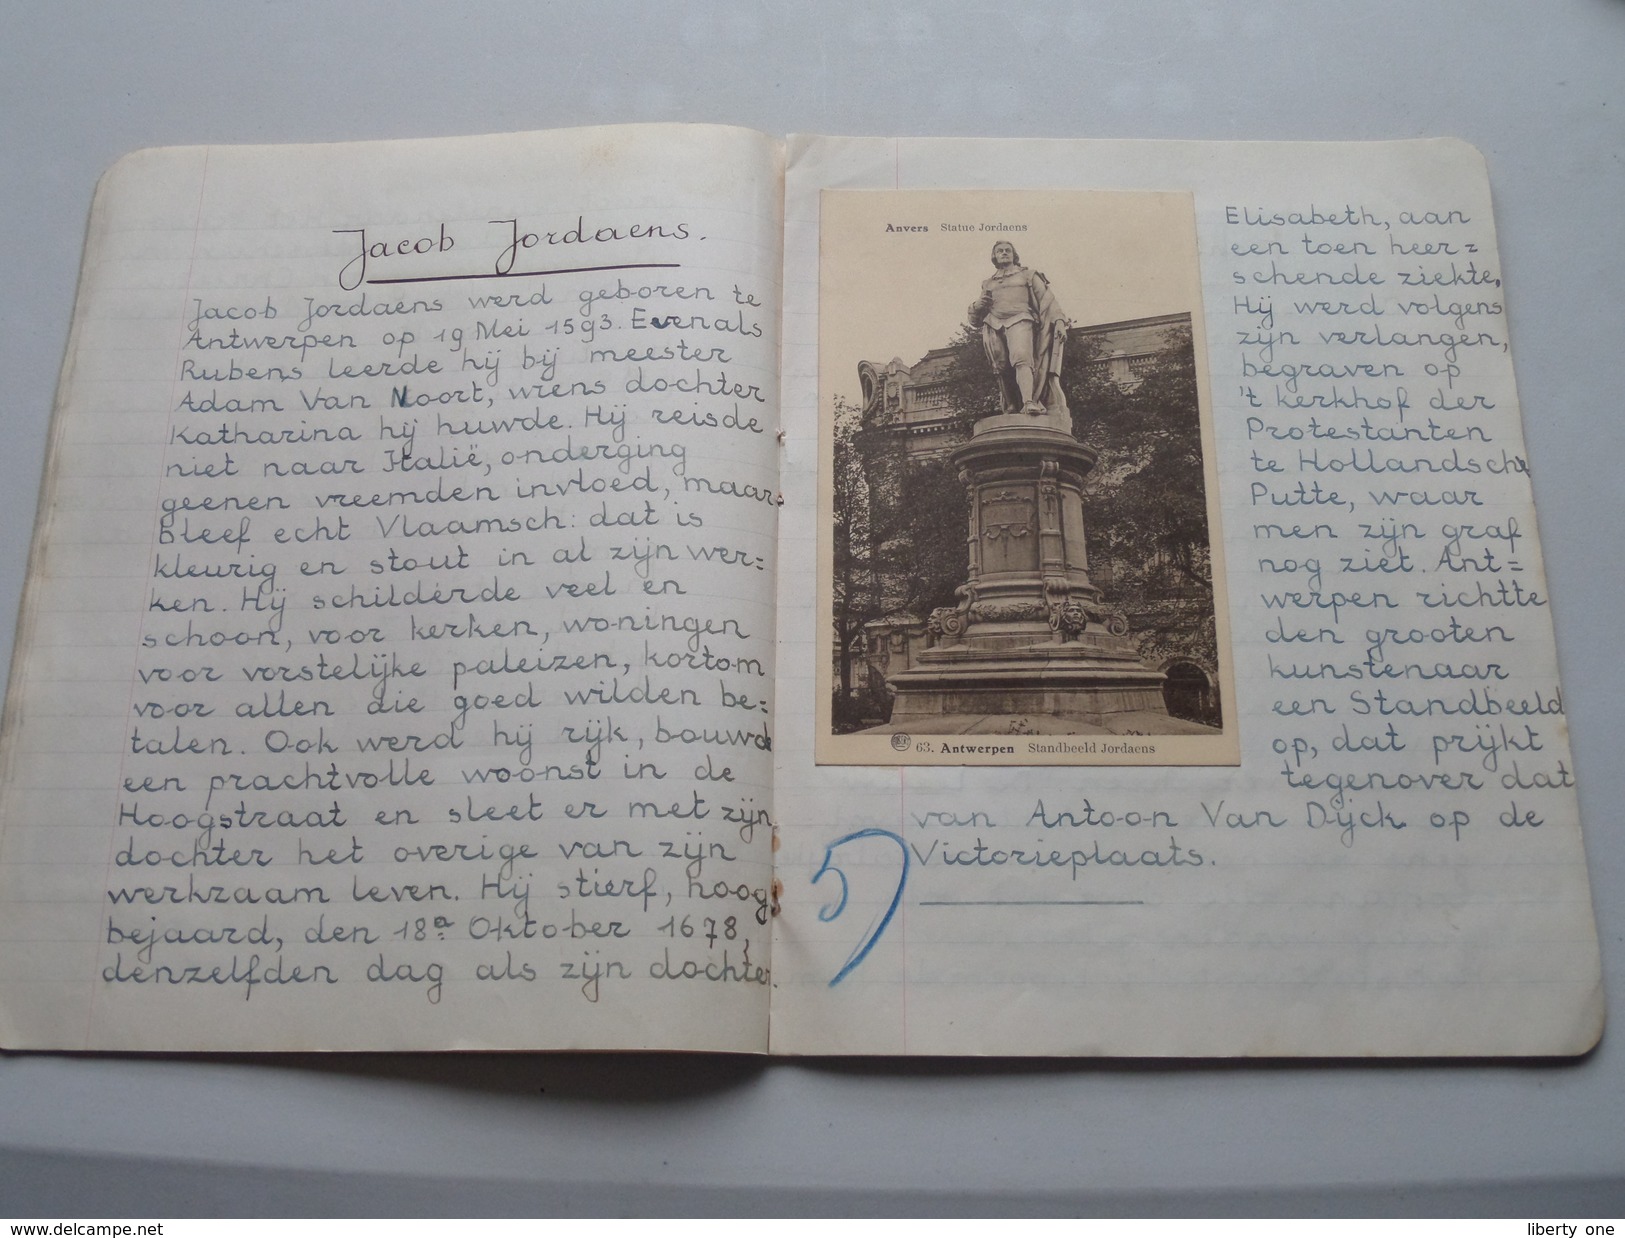 Jacob Jordaens.
Jacob Jordaens werd geboren te
Antwerpen op 19 Mei 1593. Evenals
Rubens leerde hij bij meester
Adam Van Noort, wiens dochter
Katharina hij huwde. Hij reisde
niet naar Italië, onderging
geenen vreemden invloed, maar
bleef echt Vlaamsch: dat is
kleurig en stout in al zijn wer=
ken. Hij schilderde veel en
schoon, voor kerken, woningen
voor vorstelijke paleizen, kortom
voor allen die goed wilden be=
talen. Ook werd hij rijk, bouwde
een prachtvolle woonst in de
Hoogstraat en sleet er met zijn
dochter het overige van zijn
werkzaam leven. Hij stierf, hoog
bejaard, den 18e Oktober 1678,
denzelfden dag als zijn dochter
Anvers Statue Jordaens
63. Antwerpen Standbeeld Jordaens
Elisabeth, aan
een toen heer=
schende ziekte.
Hij werd volgens
zijn verlangen,
begraven op
't kerkhof der
Protestanten
te Hollandsche
Putte, waar
men zijn graf
nog ziet. Ant=
werpen richtte
den grooten
kunstenaar
een Standbeeld
op, dat prijkt
tegenover dat
van Antoon Van Dijck op de
Victorieplaats.
5
www.delcampe.net
liberty one